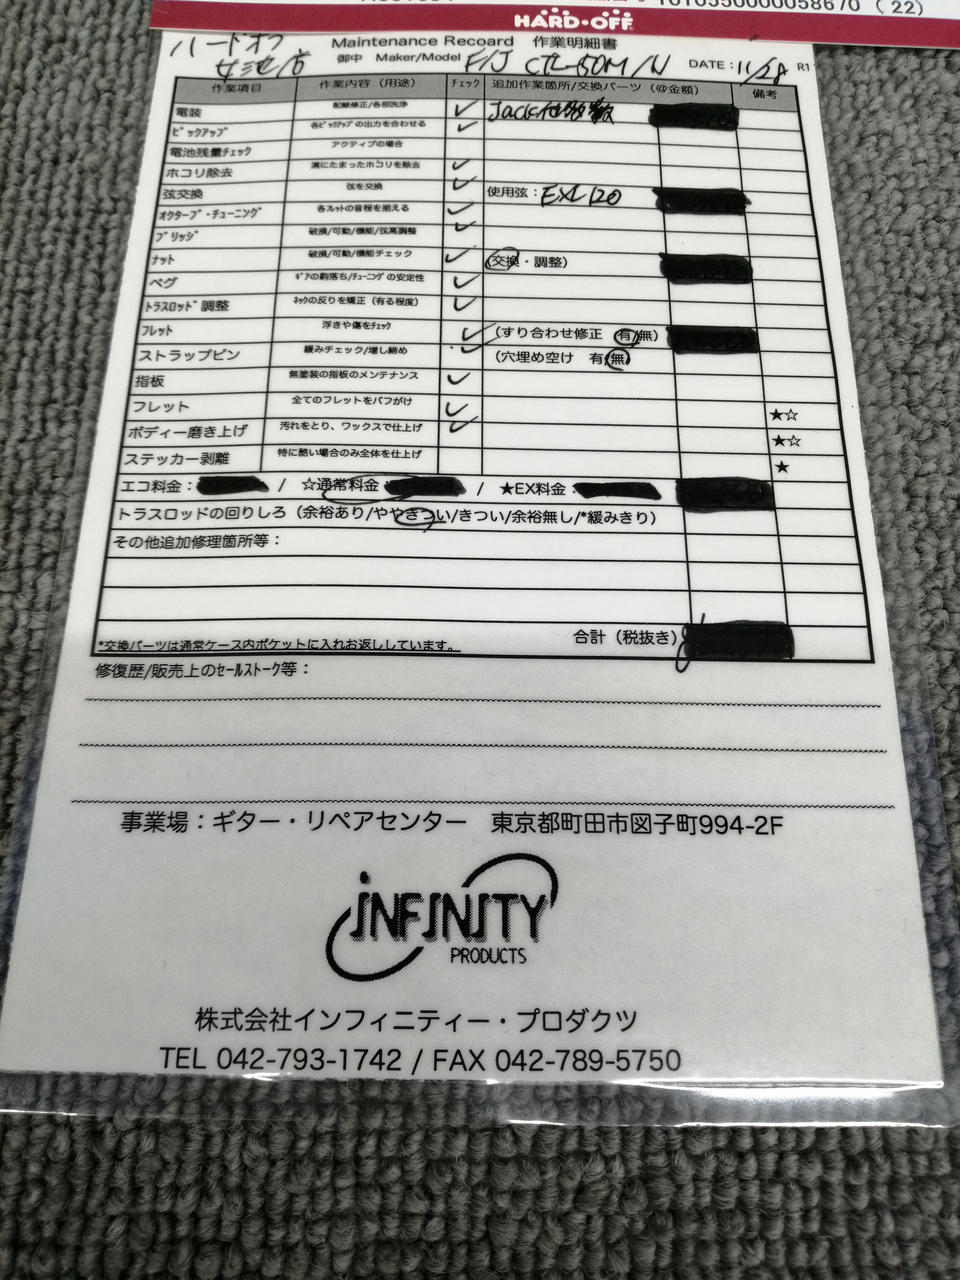 1010550000058670 (22)
HARD・OFF
ハードオフ
Maintenance Recoard 作業明細書
女池店 御中 Maker/Model F/J CTL-50M/N DATE：11/28 R1
作業項目 作業内容（用途） チェック 追加作業箇所/交換パーツ（@金額） 備考
電装 配線修正/各部洗浄 ✓ Jack
ピックアップ 各ピックアップの出力を合わせる ✓
電池残量チェック アクティブの場合
ホコリ除去 溝にたまったホコリを除去 ✓
弦交換 弦を交換 ✓ 使用弦：EXL120
オクターブ・チューニング 各フレットの音程を揃える ✓
ブリッジ 破損/可動/機能/弦高調整 ✓
ナット 破損/可動/機能チェック ✓ (交換・調整)
ペグ ギアの動落ち/チューニングの安定性 ✓
トラスロッド調整 ネックの反りを矯正（有る程度） ✓
フレット 浮きや傷をチェック ✓ (すり合わせ修正 有/無)
ストラップピン 緩みチェック/増し締め ✓ (穴埋め空け 有/無)
指板 無塗装の指板のメンテナンス ✓
フレット 全てのフレットをバフがけ ✓ ★☆
ボディー磨き上げ 汚れをとり、ワックスで仕上げ ✓ ★☆
ステッカー剥離 特に酷い場合のみ全体を仕上げ ★
エコ料金： / ☆通常料金： / ★EX料金：
トラスロッドの回りしろ（余裕あり/ややきつい/きつい/余裕無し/*緩みきり）
その他追加修理箇所等：
*交換パーツは通常ケース内ポケットに入れお返ししています。 合計（税抜き）
修復歴/販売上のセールストーク等：
事業場：ギター・リペアセンター 東京都町田市図子町994-2F
iNFiNiTY
PRODUCTS
株式会社インフィニティー・プロダクツ
TEL 042-793-1742 / FAX 042-789-5750